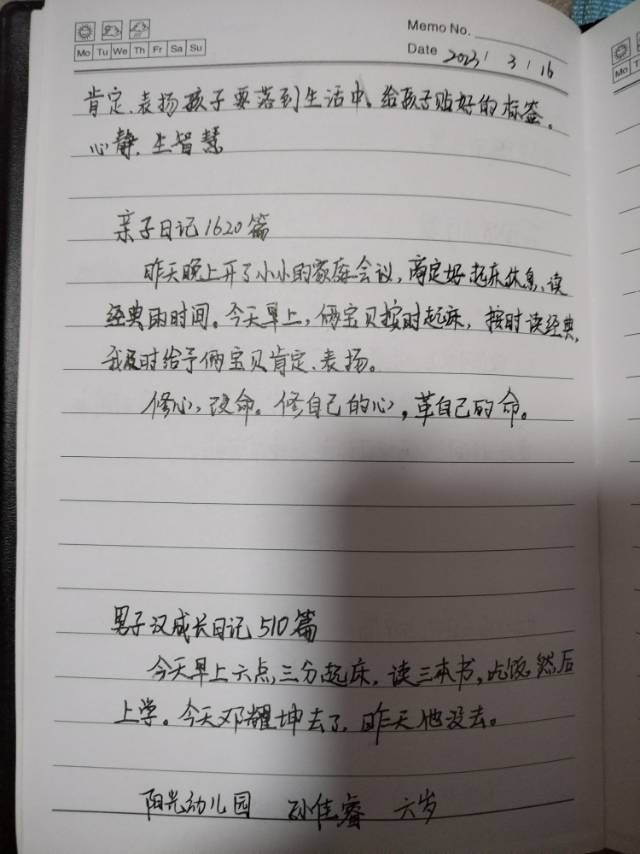 Memo No.
Mo Tu We Th Fr Sa Su
Date 2023 / 3 / 16
肯定、表扬孩子要落到生活中、给孩子贴好的标签。
心静、生智慧
亲子日记1620篇
昨天晚上开了小小的家庭会议，商定好起床休息、读
经典的时间。今天早上，俩宝贝按时起床，按时读经典，
我及时给予俩宝贝肯定、表扬。
修心，改命。修自己的心，革自己的命。
男子汉成长日记510篇
今天早上六点三分起床，读三本书，吃饭，然后
上学。今天邓耀坤去了，昨天他没去。
阳光幼儿园 孙佳睿 六岁